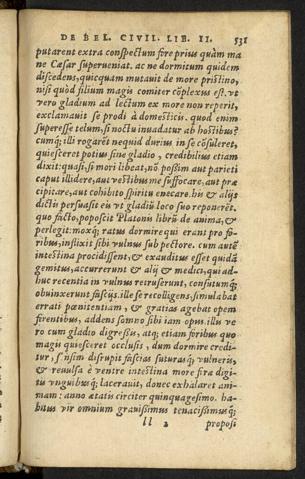 DE BEL. CIVIL. LIB. II. 531
putarent extra conspectum fore prius quàm ma
ne Cæsar superueniat. ac ne dormitum quidem
discedens, quicquam mutauit de more pristino,
nisi quòd filium magis comiter cōplexus est. vt
vero gladium ad lectum ex more non reperit,
exclamauit se prodi à domesticis. quod enim
superesse telum, si noctu inuadatur ab hostibus?
cumq; illi rogarēt nequid durius in se cōsuleret,
quiesceret potius sine gladio, credibilius etiam
dixit: quasi, si mori libeat, nō possim aut parieti
caput illidere, aut vestibus me suffocare, aut præ
cipitare, aut cohibito spiritu enecare. his & alijs
dictis persuasit eis vt gladiū loco suo reponerēt.
quo facto, poposcit Platonis librū de anima, &
perlegit: moxq; ratus dormire qui erant pro fo-
ribus, inflixit sibi vulnus sub pectore. cum autē
intestina procidissent, & exauditus esset quidā
gemitus, accurrerunt & alij & medici, qui ad-
huc recentia in vulnus retruserunt, consutumq;
obuinxerunt fascijs. ille se recolligens, simulabat
errati pœnitentiam, & gratias agebat opem
ferentibus, addens somno sibi iam opus. illi ve
ro cum gladio digressi, atq; etiam foribus quo
magis quiesceret occlusis, dum dormire credi-
tur, sensim disrupit fascias suturasq; vulneris,
& reuulsa è ventre intestina more feræ digi-
tis vnguibusq; lacerauit, donec exhalaret ani-
mam: anno ætatis circiter quinquagesimo. ha-
bitus vir omnium grauissimus tenacissimusq;
ll 2 proposi